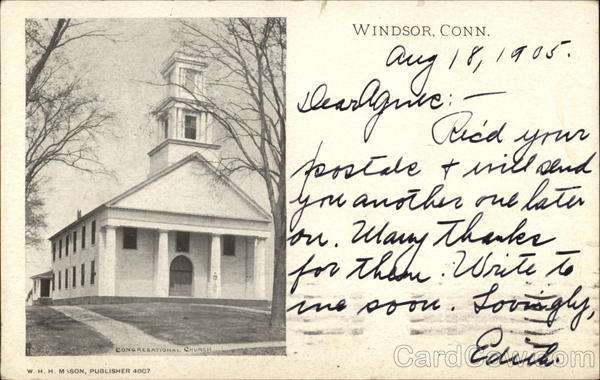 WINDSOR, CONN.
Aug 18, 1905.
Dear Agnes: —
Rec'd your
postals & will send
you another one later
on. Many thanks
for them. Write to
me soon. Lovingly,
Edith.
CONGREGATIONAL CHURCH
W. H. H. MASON, PUBLISHER 4007
CardCow.com